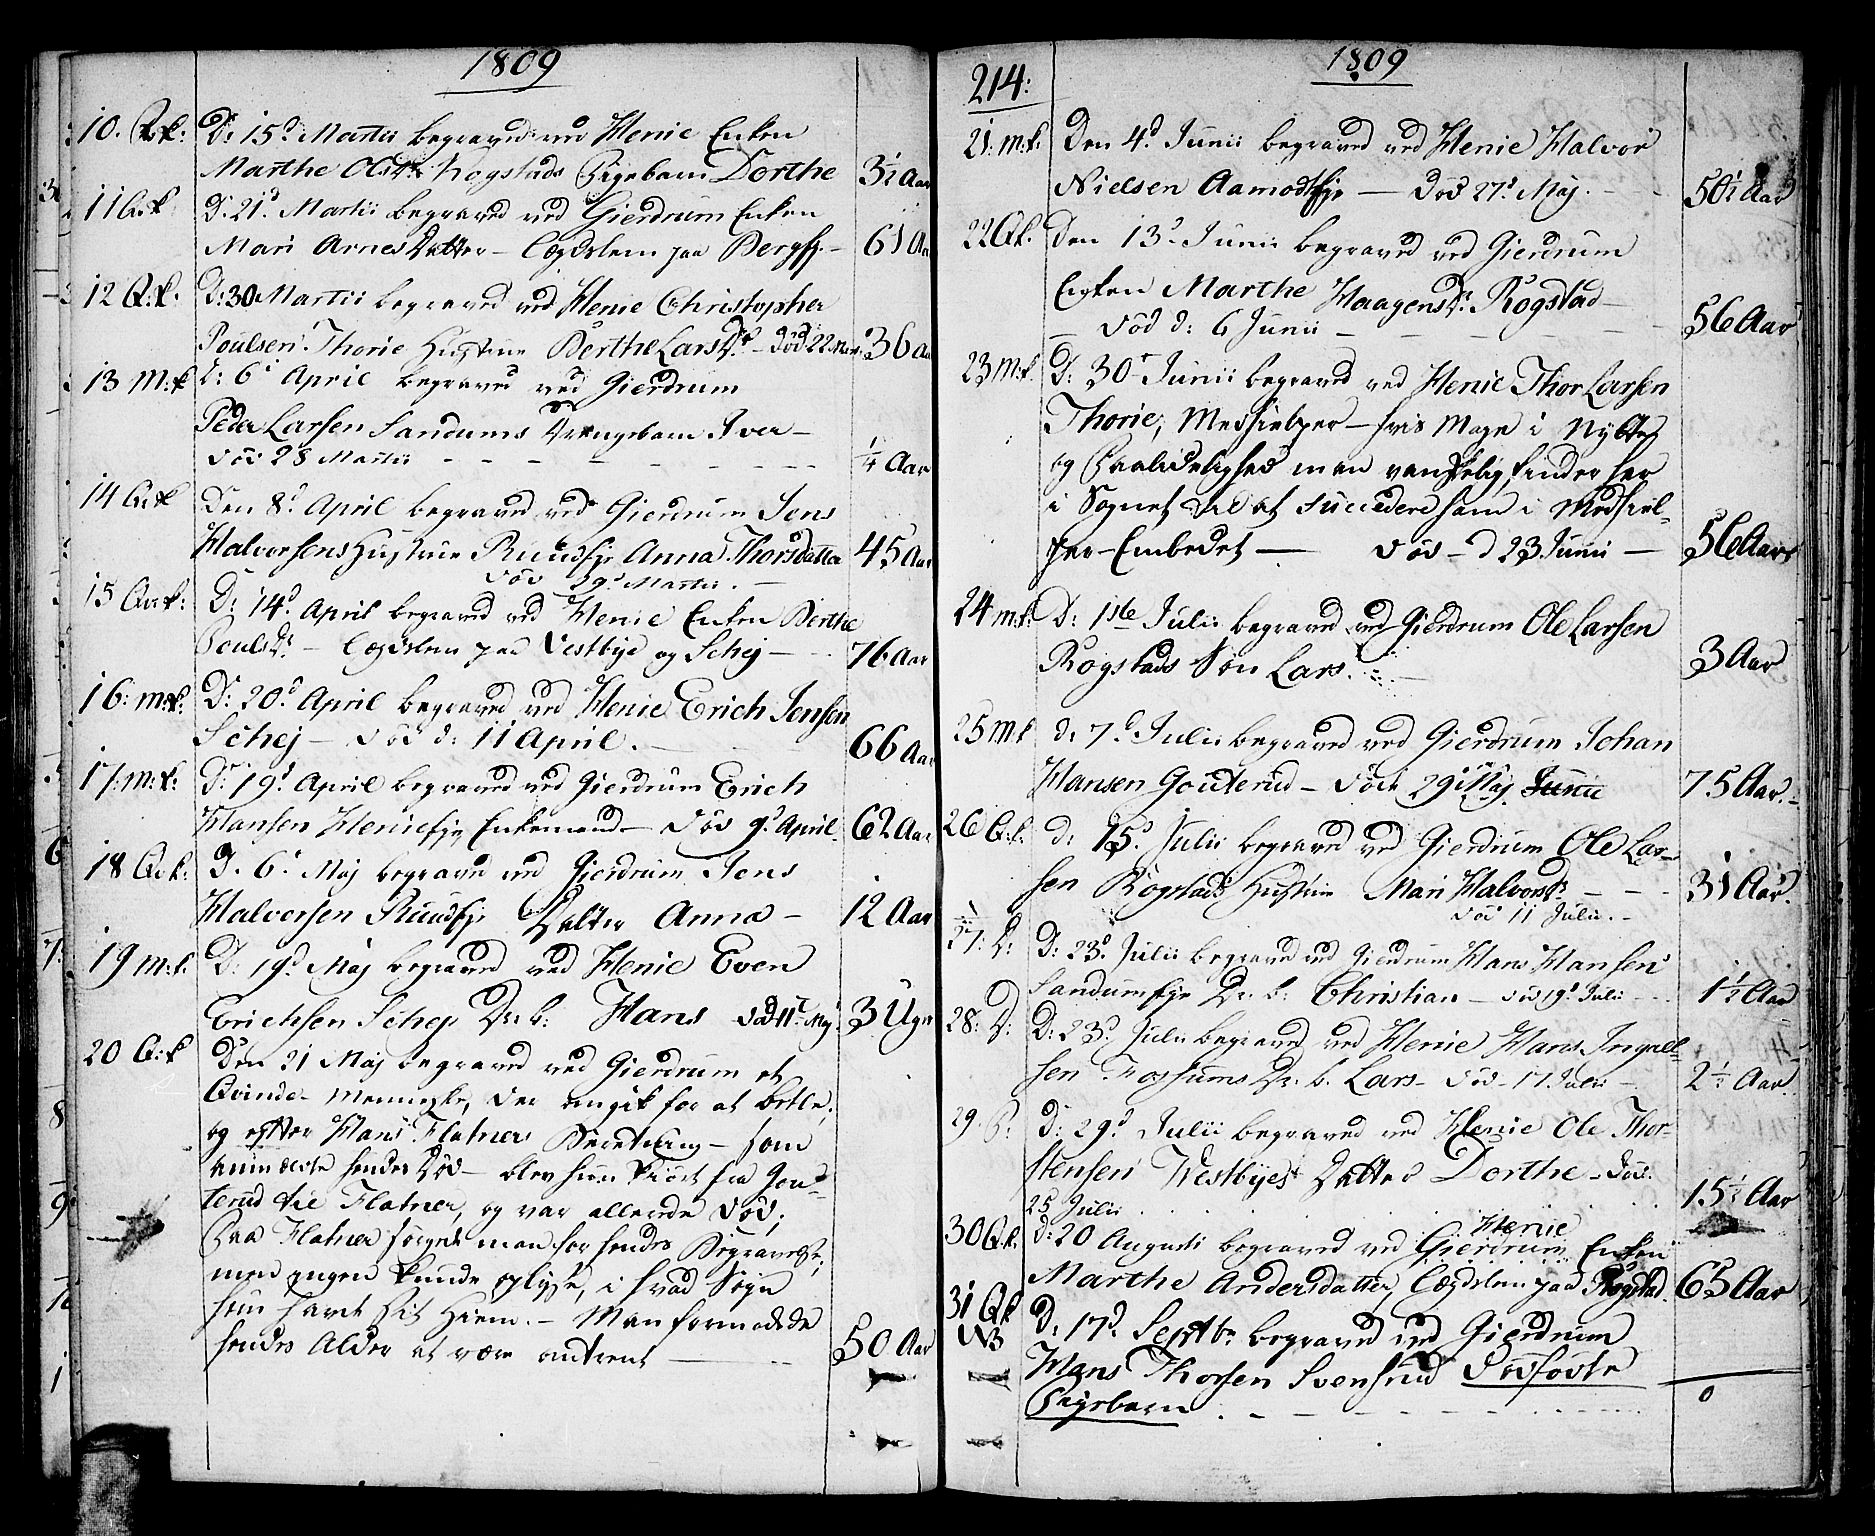 1809
10. Qk: D: 15d Martii begraved ved Henie Enken
Marthe Olsdr. Rogstads Pigebarn Dorthe 3½ Aar
11 Qk D. 21d Martii begraved ved Gierdrum Enken
Mari Arnes Datter - Lægdslem paa Berg 61 Aar
12 Q:k. D: 30 Martii begraved ved Henie Christopher
Poulsen Thorie Hustrue Berthe Larsdr. - Død 22 Mar. 36 Aar
13 M:k D: 6d April begraved ved Gierdrum
Peder Larsen Sandums Drengebarn Iver -
død 28 Martii ¼ Aar
14 Q:k Den 8d April begraved ved Gierdrum Jens
Halvorsens Hustrue Ruudeje Anna Thorsdatter 45 Aar
død 29d Martii. -
15 Q:k: D: 14d April begraved ved Henie Enken Berthe
Poulsdr. - Lægdslem paa Vestbye og Schej - 76 Aar
16: m:k: D: 20d April begraved ved Henie Erich Jensen
Schej - død d: 11 April. 66 Aar
17: m:k: D: 19d April begraved ved Gierdrum Erich
Hansen Henieeje Enkemand - død 9d April 62 Aar
18 Q:k: D. 6d Maj begravd ved Gierdrum Jens
Halvorsen Ruudeje Datter Anna - 12 Aar
19 m:k: D: 19d Maj begraved ved Henie Even
Erichsen Schej Dr: b: Hans død 11te Maj 3 Uger
20 Q:k Den 21 Maj begraved ved Gierdrum et
Qvinde-Menneske, der omgik for at betle,
og efter Hans Flatners Beretning - som
anmeldte hendes Død - blev hun kiørt fra Gou-
terud til Flatner, og var allerede død;
Paa Flatner sørgede man for hendes Begravelse;
men ingen kunde oplyse, i hvad Sogn
hun havde sit Hiem. - Man formodede
hendes Alder at være omtrent - 50 Aar
214:
1809
21: m:k: Den 4d Junii begraved ved Henie Halvor
Nielsen Aamodteje - død 27d Maj. 50½ Aar
22 Qk. Den 13d Junii begraved ved Gierdrum
Enken Marthe Haagensdr. Rogstad -
død d: 6 Junii 56 Aar
23 m:k: D: 30te Junii begraved ved Henie Thor Larsen
Thorie, Medhielper - hvis Mage i Nytte
og Paalidelighed man vanskelig finder her
i Sognet til at succedere ham i Medhiel-
per-Embedet - død - d 23 Junii - 56 Aar
24 m:k: D: 1ste Julii begraved ved Gierdrum Ole Larsen
Rogstads Søn Lars. 3 Aar
25 M:k d: 7d Julii begraved ved Gierdrum Johan
Hansen Gouterud - død 29d Maj Junii 75 Aar. -
26 Q:k: d: 15d Julii begraved ved Gierdrum Ole Lar-
sen Rogstads Hustrue Mari Halvorsdr. 31 Aar.
død 11 Julii. -
27: D: D: 23d Julii begraved ved Gierdrum Hans Hansen
Sandumseje Dr. b: Christian - død 19d Julii 1½ Aar
28: D: D: 23d Julii begraved ved Henie Hans Ingel-
sen Fossums Dr. b. Lars - død - 17 Julii - 2½ Aar.
29. P: D: 29d Julii begraved ved Henie Ole Thor-
stensen Westbyes Datter Dorthe - død
25 Julii 15½ Aar
Henie
30 Qk. d: 20 Augusti begraved ved Gierdrum Enken
Marthe Andersdatter, Lægdslem paa Rogstad. 65 Aar
31 Qk D: 17d Septbr begraved ved Gierdrum
NB Hans Thorsen Svensrud Dødfødte
Pigebarn 0